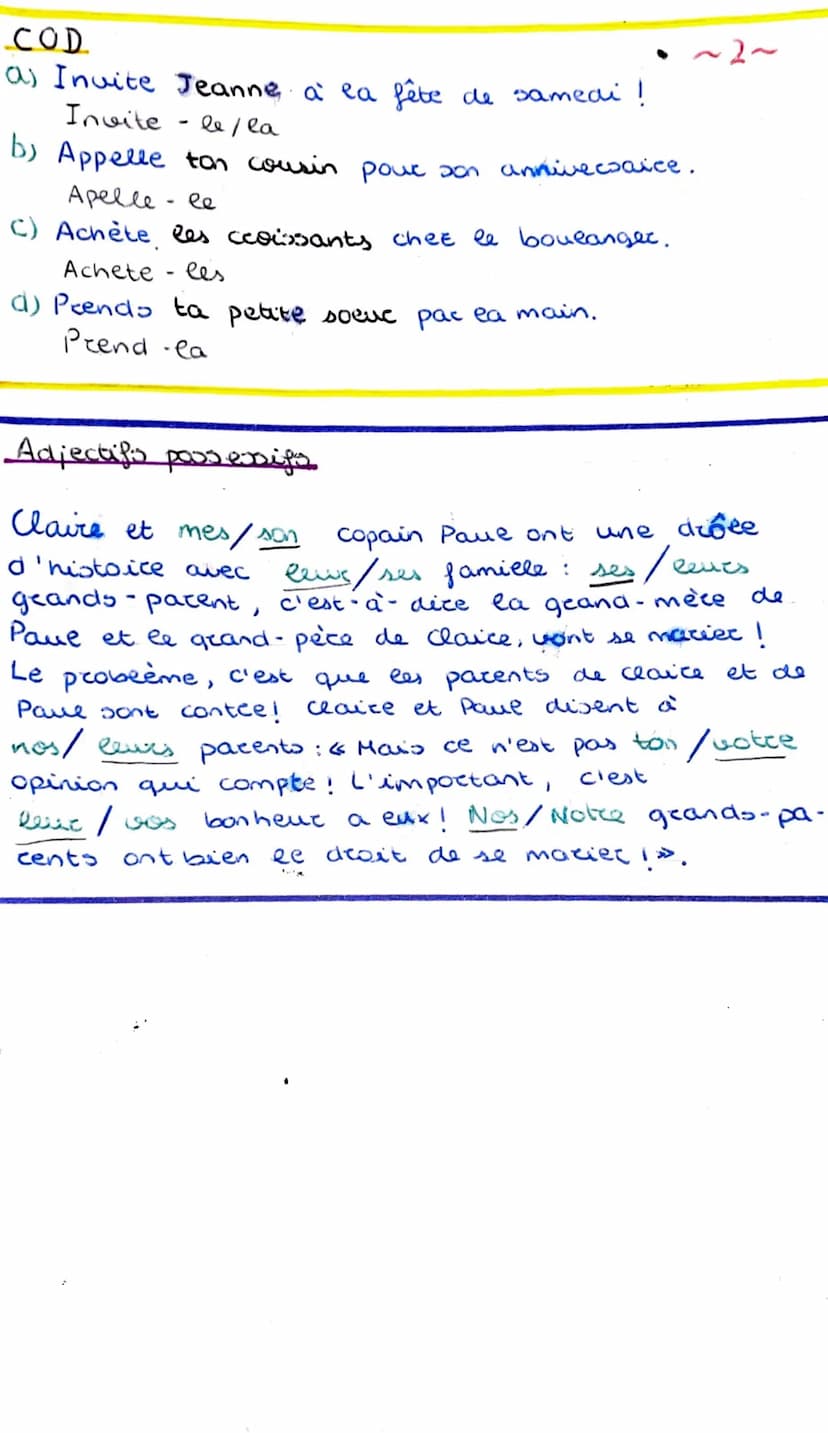 COD
~2~
a) Invite Jeanne à la fête de samedi !
Invite - le/la
b) Appelle ton cousin pour son anniversaire.
Apelle - le
c) Achète les croissants chez le boulanger.
Achete - les
d) Prends ta petite soeur par la main.
Prend - la
Adjectifs possessifs
Claire et mes/son copain Paul ont une drôle
d'histoire avec leur/ses famille : ses/leurs
grands-parent, c'est-à-dire la grand-mère de
Paul et le grand-père de Claire, vont se marier !
Le problème, c'est que les parents de Claire et de
Paul sont contre! Claire et Paul disent à
nos/leurs parents : « Mais ce n'est pas ton/votre
opinion qui compte! L'important, c'est
leur/vos bonheur a eux! Nos/Notre grands-pa-
rents ont bien le droit de se marier !».